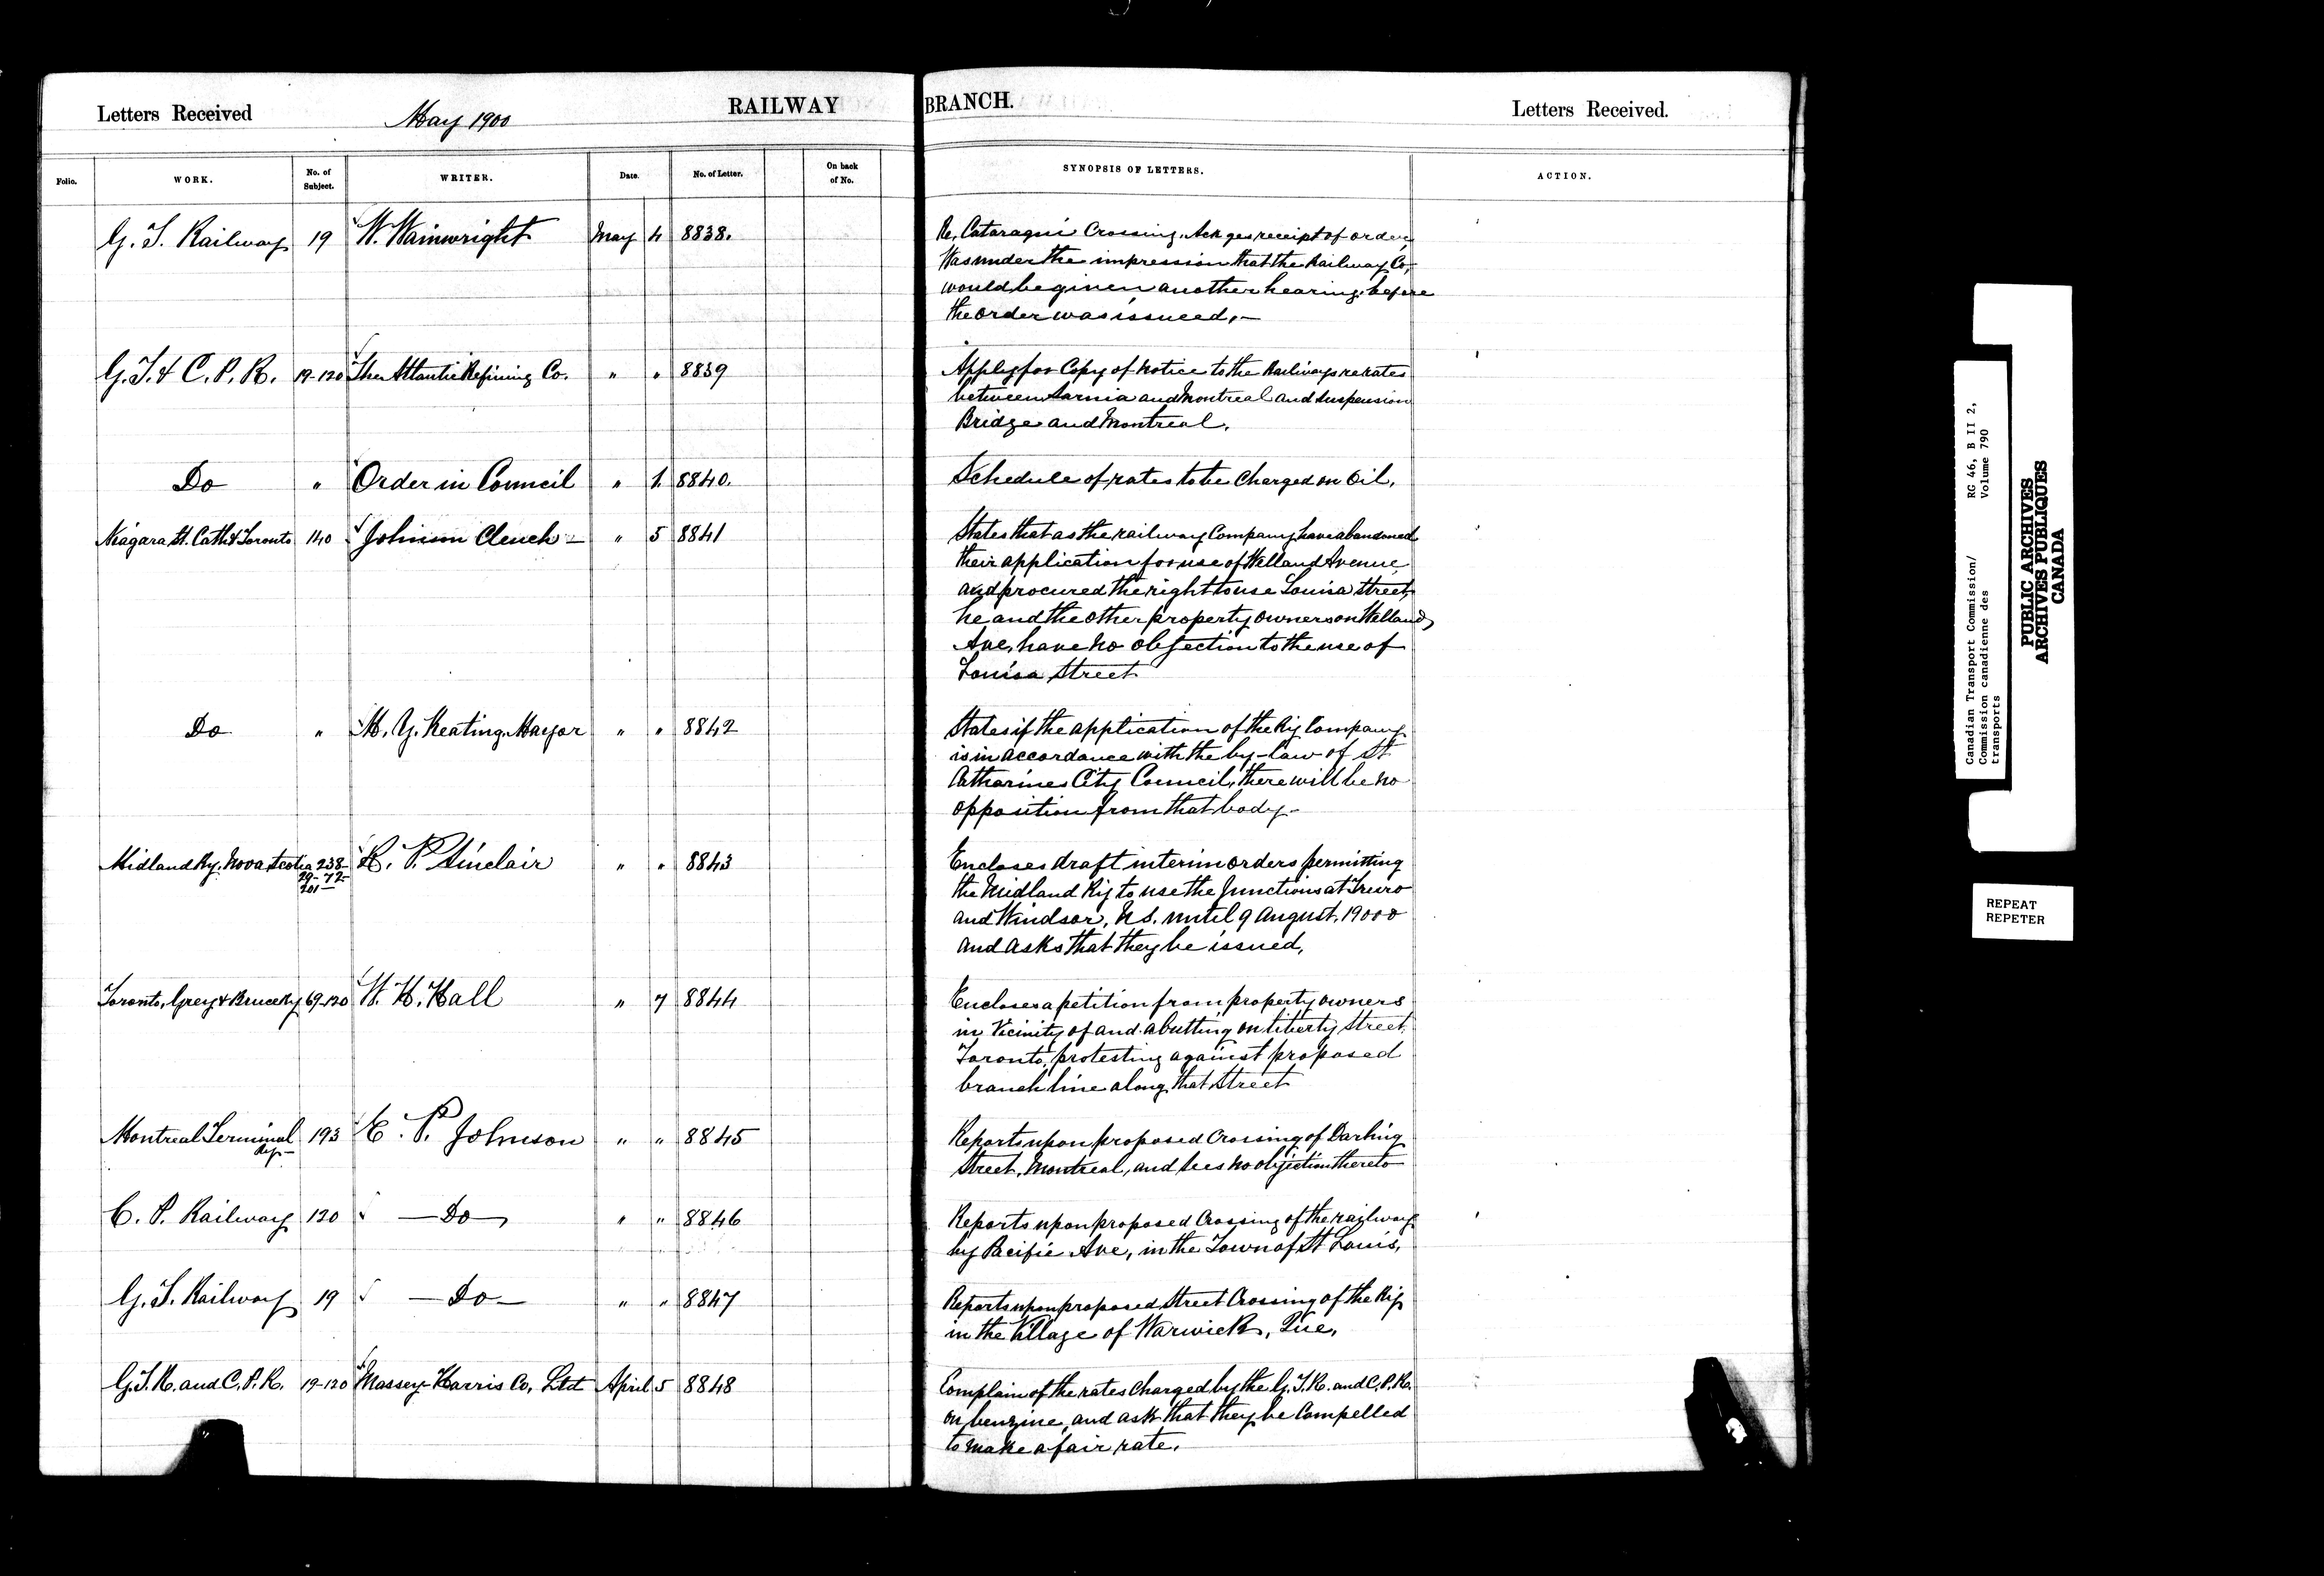 Letters Received May 1900 RAILWAY BRANCH. Letters Received.
Folio. WORK. No. of Subject. WRITER. Date. No. of Letter. On back of No. SYNOPSIS OF LETTERS. ACTION.
G. T. Railway 19 W. Wainwright May 4 8838. Re, Cataraqui Crossing. Ack ges receipt of order,
Was under the impression that the Railway Co,
would be given another hearing before
the order was issued, —
G. T. & C. P. R. 19-120 The Atlantic Refining Co. " " 8839 Apply for Copy of notice to the Railways re rates
between Sarnia and Montreal and Suspension
Bridge and Montreal.
Do " Order in Council " 1. 8840. Schedule of rates to be Charged on Oil.
Niagara St. Cath & Toronto 140 Johnson Clench — " 5 8841 States that as the railway Company have abandoned
their application for use of Welland Avenue
and procured the right to use Louisa Street,
he and the other property owners on Welland
Ave, have no objection to the use of
Louisa Street
Do " M. Y. Keating, Mayor " " 8842 States if the application of the Ry Company
is in accordance with the by-law of St
Catharines City Council, there will be no
opposition from that body —
Midland Ry. Nova Scotia 238- H. P. Sinclair " " 8843 Encloses draft interim orders permitting
29-72-
201 —
the Midland Ry to use the Junctions at Truro
and Windsor, N.S. until 9 August, 1900
and asks that they be issued,
Toronto, Grey & Bruce Ry 69-120 W. H. Hall " 7 8844 Encloses a petition from property owners
in Vicinity of and abutting on Liberty Street,
Toronto, protesting against proposed
branch line along that Street
Montreal Terminal 193 E. P. Johnson " " 8845 Reports upon proposed Crossing of Darling
Ry —
Street, Montreal, and sees no objection thereto
C. P. Railway 120 — Do " " 8846 Reports upon proposed Crossing of the railway
by Pacific Ave, in the Town of St Louis,
G. T. Railway 19 — Do — " " 8847 Reports upon proposed Street Crossing of the Ry
in the Village of Warwick, Que,
G. T. R. and C. P. R. 19-120 Massey-Harris Co, Ltd April 5 8848 Complain of the rates Charged by the G. T. R. and C. P. R.
on benzine, and ask that they be Compelled
to make a fair rate.
Canadian Transport Commission/ RG 46, B II 2,
Commission canadienne des Volume 790
transports
PUBLIC ARCHIVES
ARCHIVES PUBLIQUES
CANADA
REPEAT
REPETER